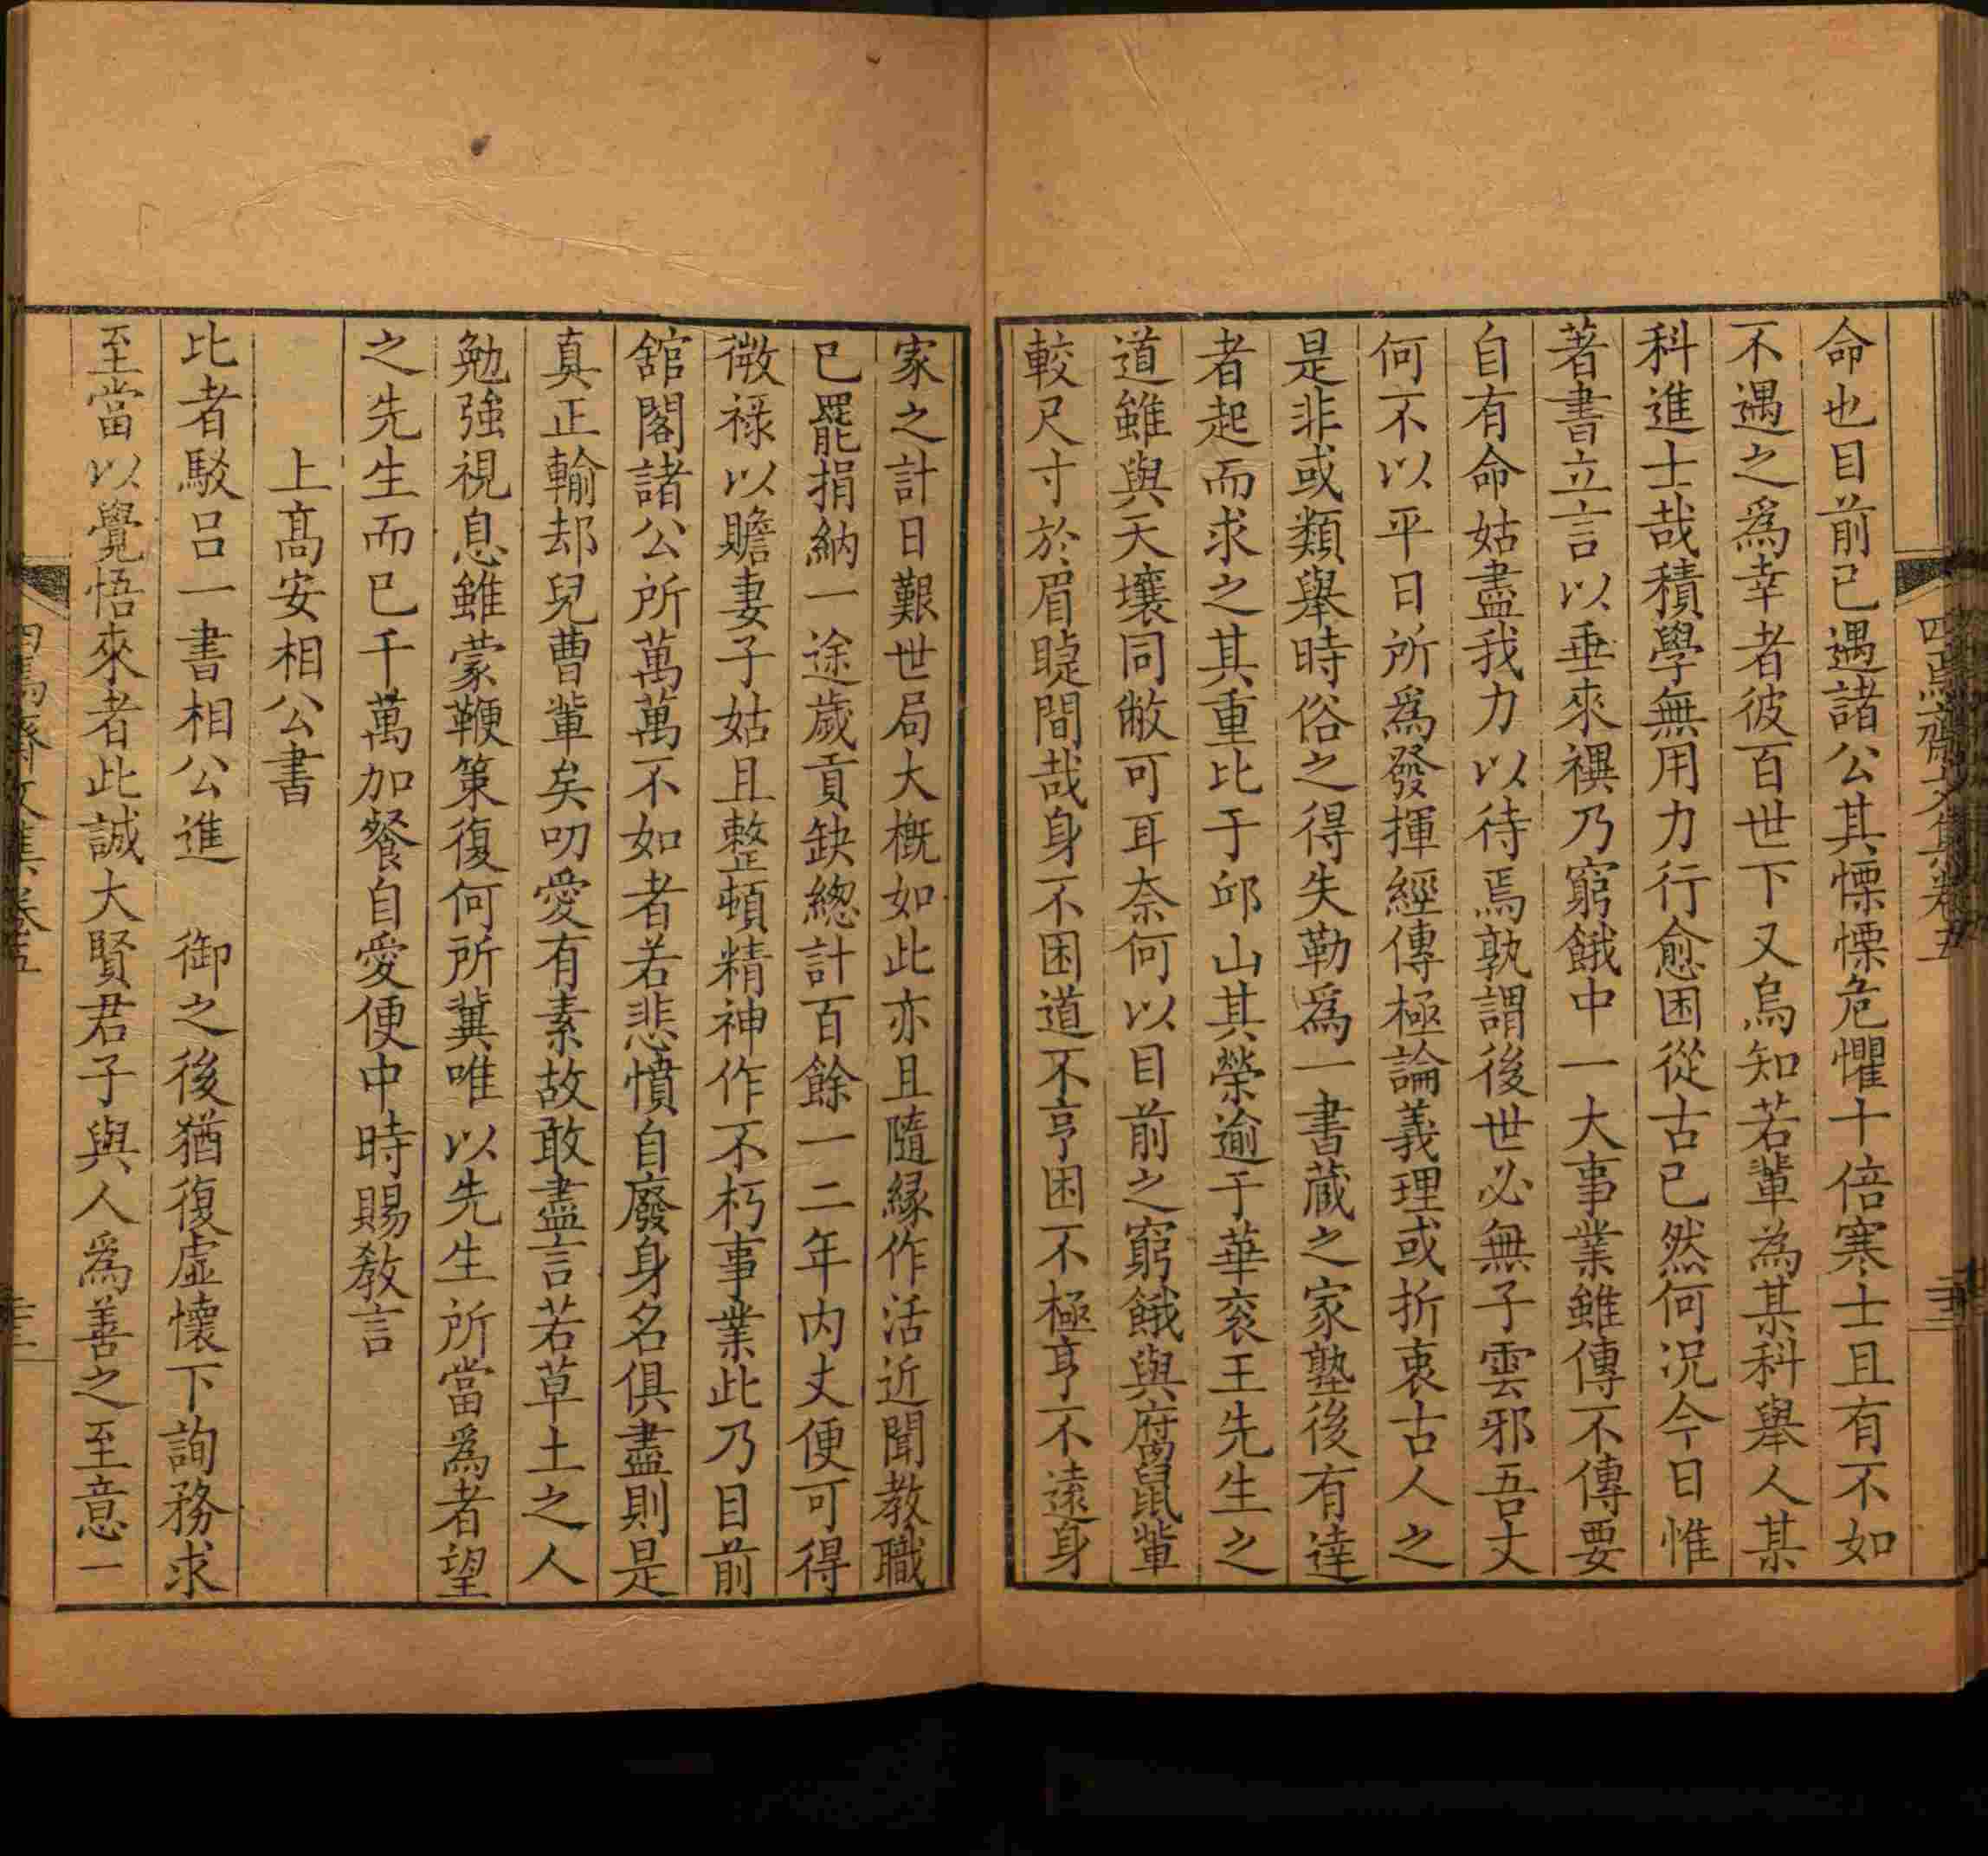 命也目前已遇諸公其慄慄危懼十倍寒士且有不如
不遇之爲幸者彼百世下又烏知若輩為某科舉人某
科進士哉積學無用力行愈困從古已然何況今日惟
著書立言以垂來禩乃窮餓中一大事業雖傳不傳要
自有命姑盡我力以待焉孰謂後世必無子雲邪吾丈
何不以平日所爲發揮經傳極論義理或折衷古人之
是非或類舉時俗之得失勒爲一書蔵之家塾後有達
者起而求之其重比于邱山其榮逾于華衮王先生之
道雖與天壤同敝可耳奈何以目前之窮餓與腐鼠輩
較尺寸於眉睫間哉身不困道不亨困不極亨不遠身
家之計日艱世局大概如此亦且隨緣作活近聞教職
已罷捐納一途歲貢缺總計百餘一二年内丈便可得
微祿以贍妻子姑且整頓精神作不朽事業此乃目前
舘閣諸公所萬萬不如者若悲憤自廢身名俱盡則是
真正輸却兒曹輩矣叨愛有素故敢盡言若草土之人
勉強視息雖蒙鞭策復何所冀唯以先生所當爲者望
之先生而已千萬加餐自愛便中時賜教言
上髙安相公書
比者駁呂一書相公進 御之後猶復虛懷下詢務求
至當以覺悟來者此誠大賢君子與人爲善之至意一